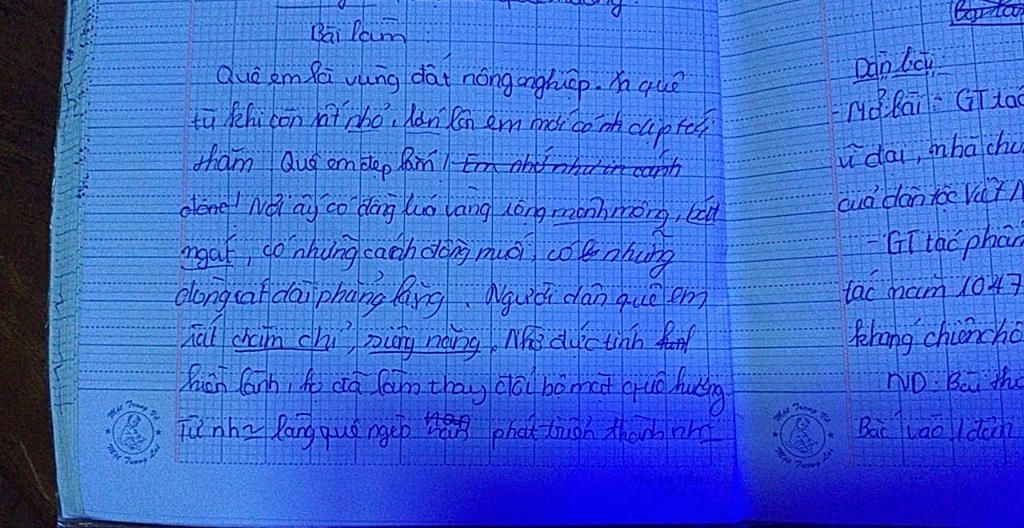 Bài làm
Quê em là vùng đất nông nghiệp. Xa quê
từ khi còn rất nhỏ, lớn lên em mới có nh dịp tới
thăm. Quê em đẹp lắm! Em nhớ như in cánh
đồng! Nơi ấy có đồng lúa vàng rộng mênh mông, bát
ngát, có những cánh đồng muối, có những
dòng cát dài phẳng lặng. Người dân quê em
rất chăm chỉ, siêng năng. Nhờ đức tính
hiền lành, họ đã làm thay đổi bộ mặt quê hương.
Từ nh~ làng quê nghèo phát triển thành nh~
Dàn bài:
- Mở bài: GT tác
vĩ đại, nhà
của dân tộc Việt N
- GT tác phẩm
tác năm 1947
kháng chiến chố
ND: Bài th
Bác vào 1 đêm
Một Trang Vở
Một Tương Lai
Một Trang Vở
Một Tương Lai